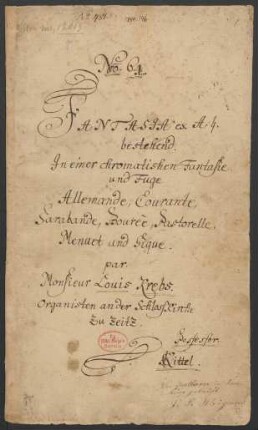 No. 64.
FANTASIA ex A. 4.
bestehend
In einer chromatischen Fantasie
und Fuge
Allemande, Courante
Sarabande, Bourée, Pastorelle
Menuet and Gique.
par
Monsieur Louis Krebs,
Organisten an der Schlosskirche
zu Zeitz.
Possessor
Kittel.